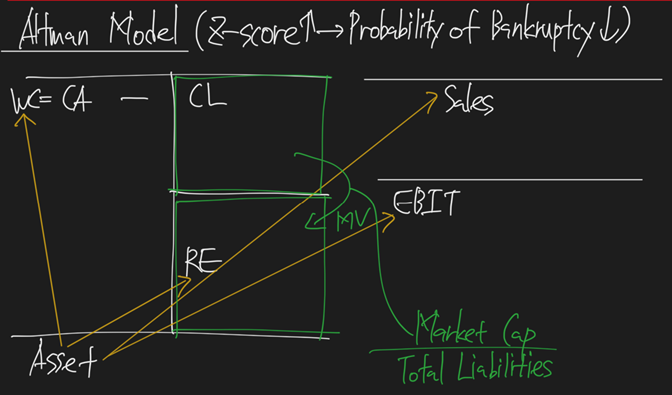 Altman Model (Z-score↑→Probability of Bankruptcy↓)
WC = CA - CL
Sales
EBIT
MV
RE
Market Cap
Total Liabilities
Asset